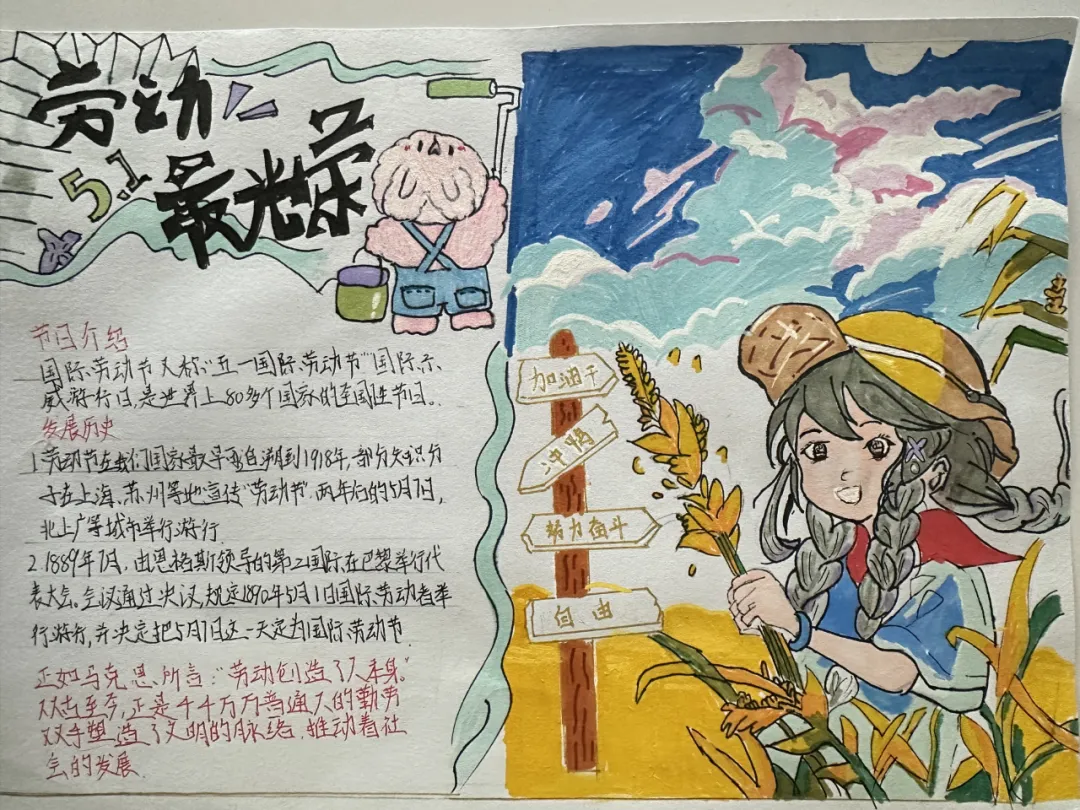 劳动
5.1
最光荣
节日介绍
国际劳动节又称"五一国际劳动节"国际示
威游行日,是世界上80多个国家的全国性节日。
发展历史
1.劳动节在我们国家最早可追溯到1918年,部分知识分
子在上海、苏州等地宣传"劳动节".两年后的5月1日,
北上广等城市举行游行.
2.1889年7月,由恩格斯领导的第二国际在巴黎举行代
表大会。会议通过决议,规定1890年5月1日国际劳动者举
行游行,并决定把5月1日这一天定为国际劳动节.
正如马克思所言:"劳动创造了人本身。"
从古至今,正是千千万万普通人的勤劳
双手塑造了文明的脉络.推动着社
会的发展.
加油干
冲鸭
努力奋斗
自由